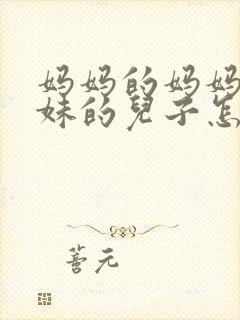 妈妈的妈妈
妹的兒子怎
善元